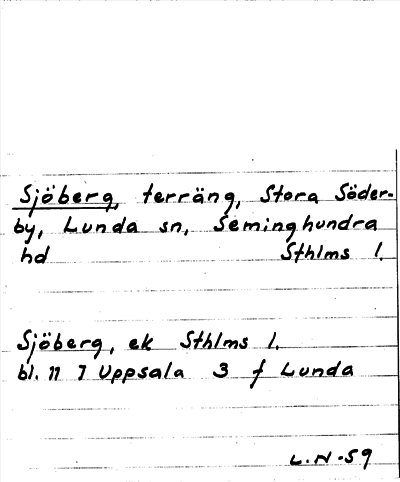 Sjöberg, terräng, Stora Söder-
by, Lunda sn, Seminghundra
hd Sthlms l.
Sjöberg, ek Sthlms l.
bl. 11 7 Uppsala 3 f Lunda
L.N-59